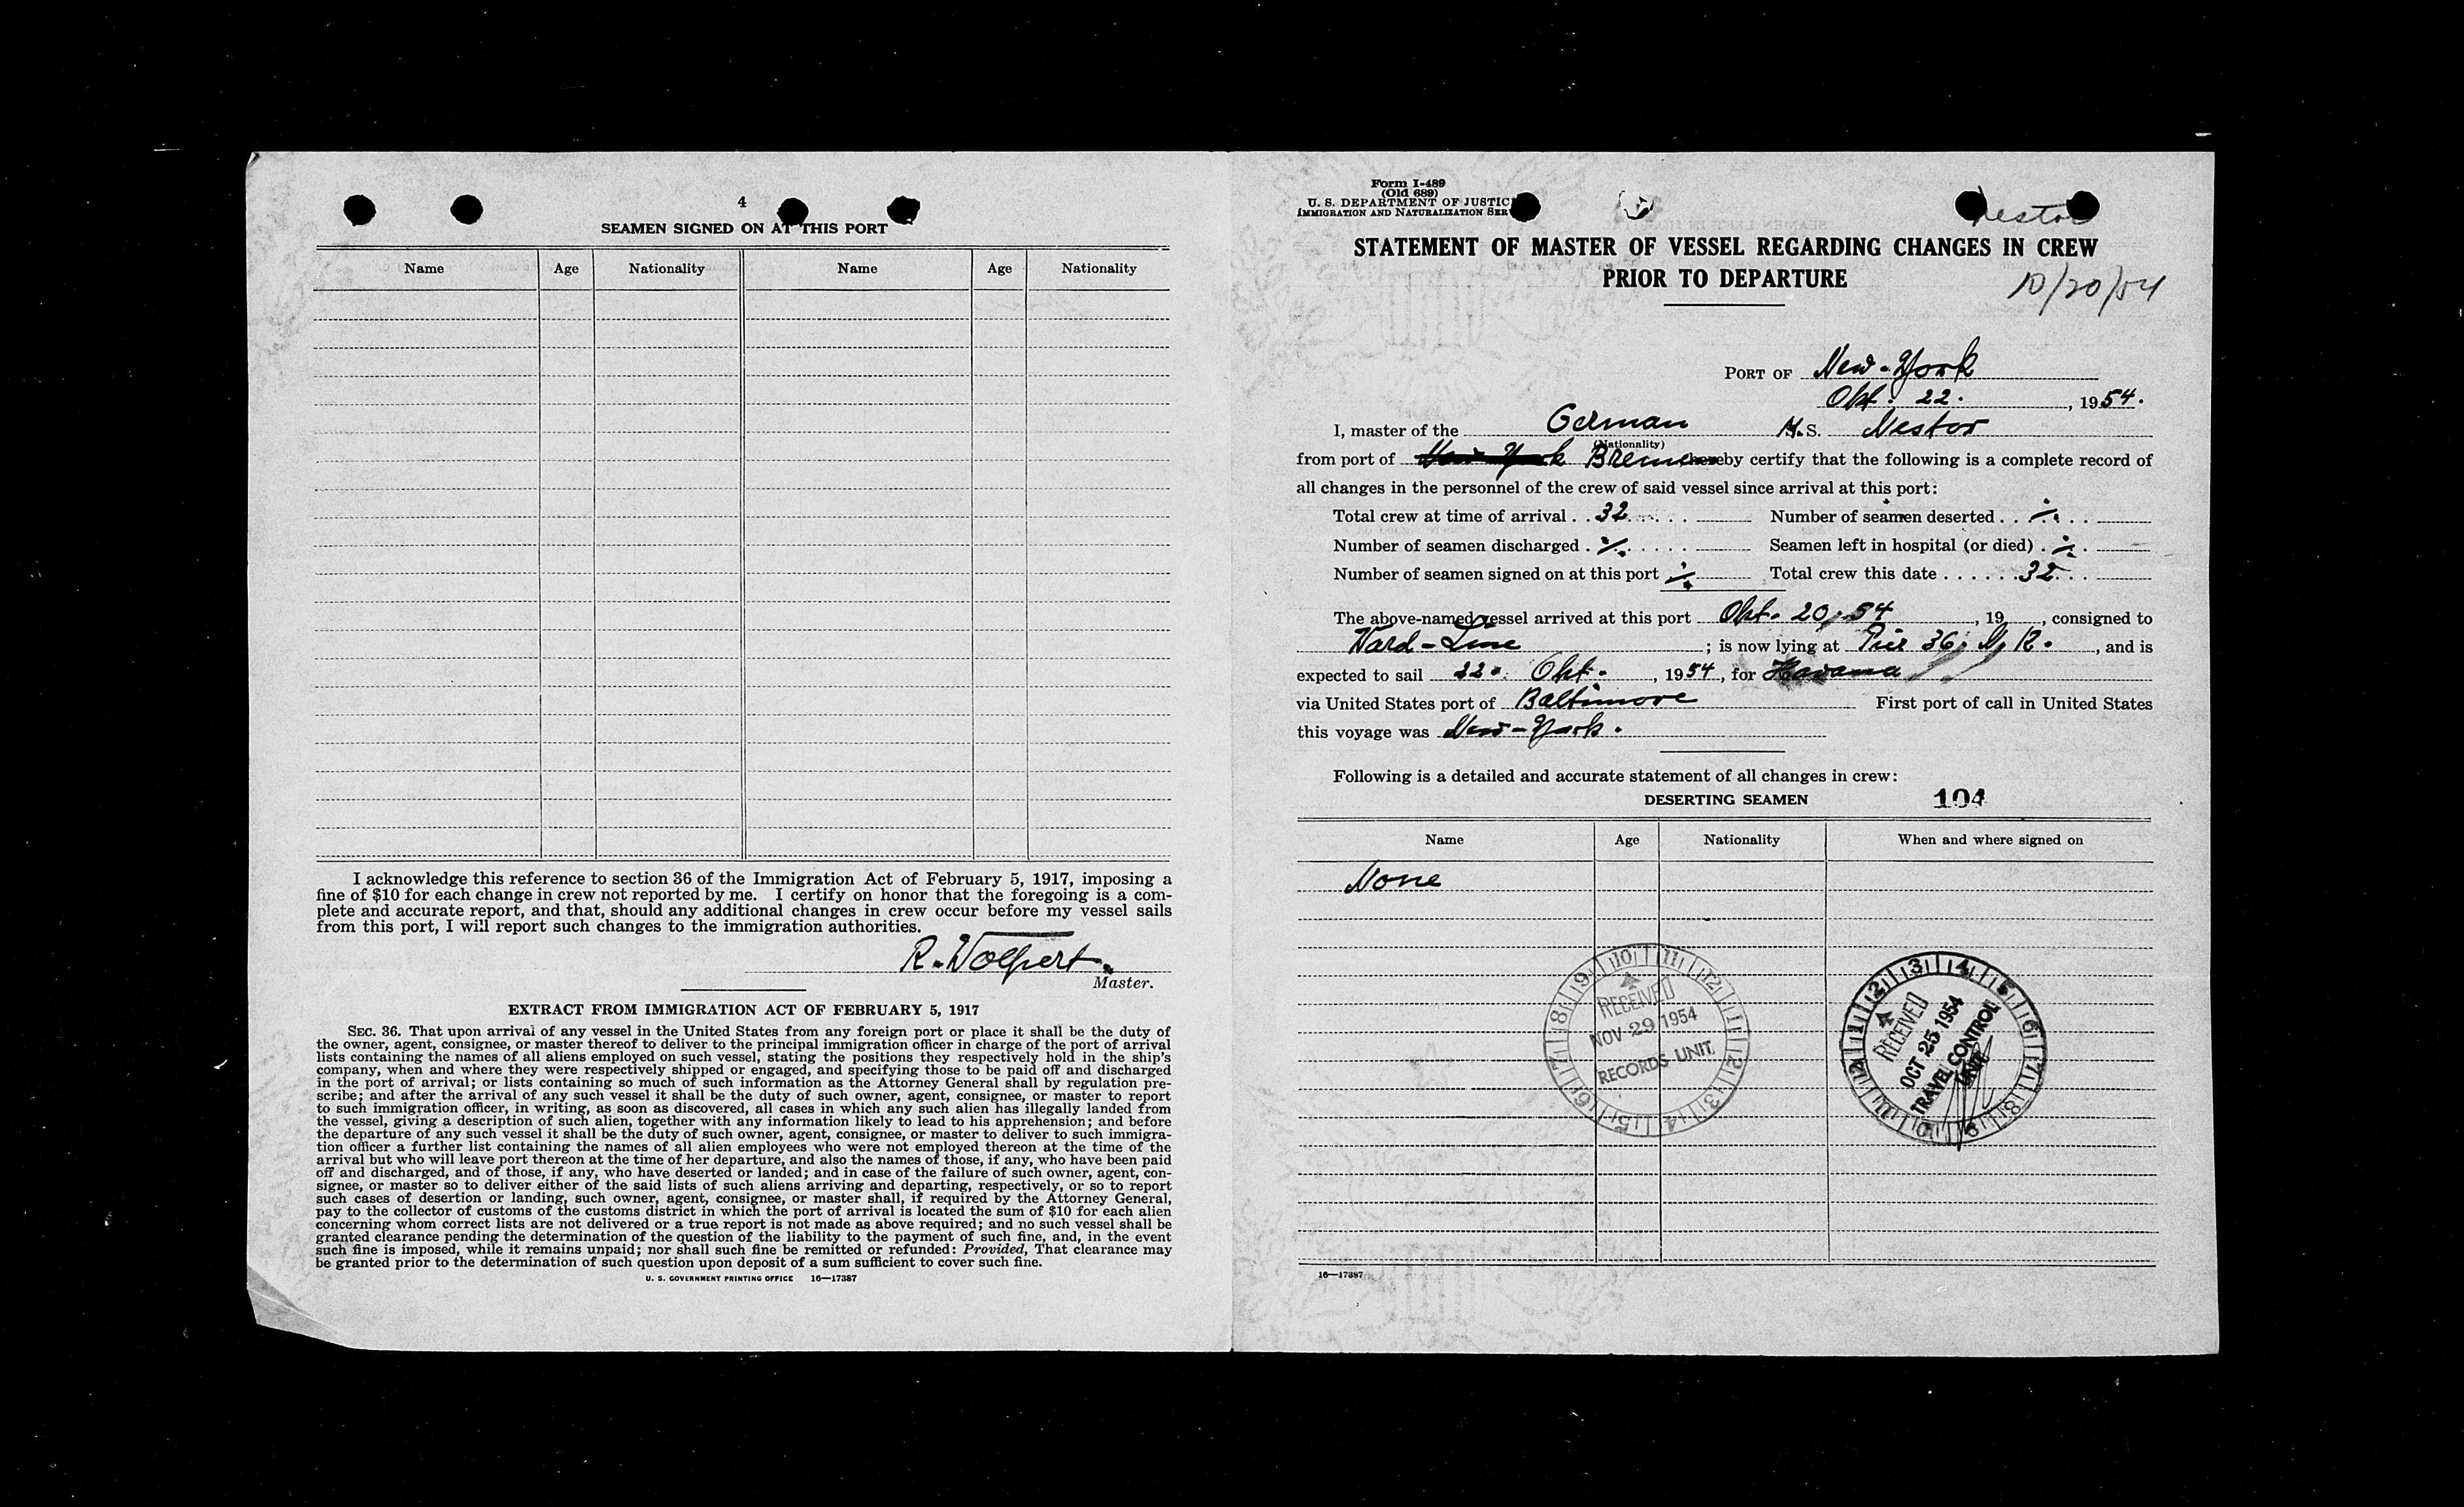 4
SEAMEN SIGNED ON AT THIS PORT
Name Age Nationality Name Age Nationality
I acknowledge this reference to section 36 of the Immigration Act of February 5, 1917, imposing a
fine of $10 for each change in crew not reported by me. I certify on honor that the foregoing is a com-
plete and accurate report, and that, should any additional changes in crew occur before my vessel sails
from this port, I will report such changes to the immigration authorities.
R. Wolpert.
Master.
EXTRACT FROM IMMIGRATION ACT OF FEBRUARY 5, 1917
SEC. 36. That upon arrival of any vessel in the United States from any foreign port or place it shall be the duty of
the owner, agent, consignee, or master thereof to deliver to the principal immigration officer in charge of the port of arrival
lists containing the names of all aliens employed on such vessel, stating the positions they respectively hold in the ship's
company, when and where they were respectively shipped or engaged, and specifying those to be paid off and discharged
in the port of arrival; or lists containing so much of such information as the Attorney General shall by regulation pre-
scribe; and after the arrival of any such vessel it shall be the duty of such owner, agent, consignee, or master to report
to such immigration officer, in writing, as soon as discovered, all cases in which any such alien has illegally landed from
the vessel, giving a description of such alien, together with any information likely to lead to his apprehension; and before
the departure of any such vessel it shall be the duty of such owner, agent, consignee, or master to deliver to such immigra-
tion officer a further list containing the names of all alien employees who were not employed thereon at the time of the
arrival but who will leave port thereon at the time of her departure, and also the names of those, if any, who have been paid
off and discharged, and of those, if any, who have deserted or landed; and in case of the failure of such owner, agent, con-
signee, or master so to deliver either of the said lists of such aliens arriving and departing, respectively, or so to report
such cases of desertion or landing, such owner, agent, consignee, or master shall, if required by the Attorney General,
pay to the collector of customs of the customs district in which the port of arrival is located the sum of $10 for each alien
concerning whom correct lists are not delivered or a true report is not made as above required; and no such vessel shall be
granted clearance pending the determination of the question of the liability to the payment of such fine, and, in the event
such fine is imposed, while it remains unpaid; nor shall such fine be remitted or refunded: Provided, That clearance may
be granted prior to the determination of such question upon deposit of a sum sufficient to cover such fine.
U. S. GOVERNMENT PRINTING OFFICE 16—17387
Form I-489
(Old 689)
U. S. DEPARTMENT OF JUSTIC
IMMIGRATION AND NATURALIZATION SER
Nestor
STATEMENT OF MASTER OF VESSEL REGARDING CHANGES IN CREW
PRIOR TO DEPARTURE
10/20/54
PORT OF New-York
Okt. 22. , 1954.
I, master of the German M.S. Nestor
(Nationality)
from port of New York Bremen hereby certify that the following is a complete record of
all changes in the personnel of the crew of said vessel since arrival at this port:
Total crew at time of arrival . . 32 Number of seamen deserted . . ./.
Number of seamen discharged . ./. Seamen left in hospital (or died) . ./.
Number of seamen signed on at this port ./. Total crew this date . . . . . . 32
The above-named vessel arrived at this port Okt. 20, 54 , 19 , consigned to
Ward-Line ; is now lying at Pier 36, N, R. , and is
expected to sail 22. Okt. , 1954, for Havana
via United States port of Baltimore First port of call in United States
this voyage was New-York.
Following is a detailed and accurate statement of all changes in crew:
DESERTING SEAMEN 104
Name Age Nationality When and where signed on
None
RECEIVED
NOV 29 1954
RECORDS UNIT
RECEIVED
OCT 25 1954
TRAVEL CONTROL
UNIT
16—17387